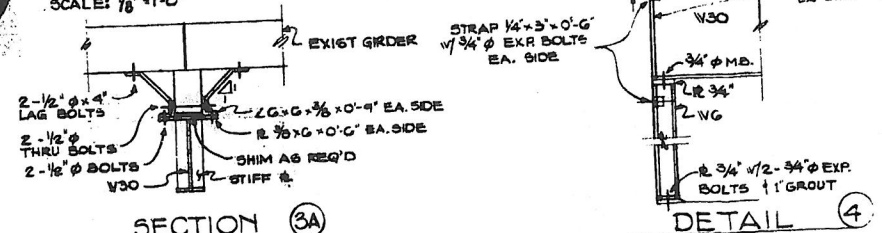 SCALE: 1/8"=1'-0"
EXIST GIRDER
2-1/2" φ x 4"
LAG BOLTS
2-1/2" φ
THRU BOLTS
2-1/2" φ BOLTS
W30
L6x6x3/8 x0'-9" EA. SIDE
PL 3/8x6 x0'-6" EA. SIDE
SHIM AS REQ'D
STIFF PL
SECTION 3A
STRAP 1/4"x3"x0'-6"
W/ 3/4" φ EXP. BOLTS
EA. SIDE
W30
3/4" φ M.B.
PL 3/4"
W6
PL 3/4" W/2-3/4" φ EXP.
BOLTS & 1" GROUT
DETAIL 4